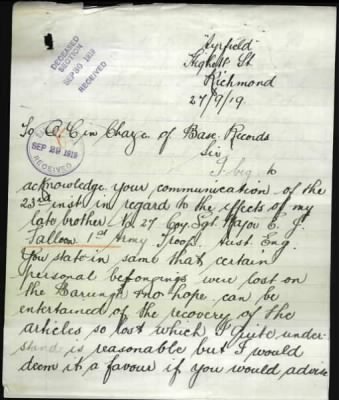 "Ayrfield"
Highett St
Richmond
27/9/19.
DECEASED
SECTION
SEP 30 1919
RECEIVED
SEP 29 1919
RECEIVED
To O.C. in Charge of Base Records
Sir,
I beg to
acknowledge your communication of the
23rd inst in regard to the effects of my
late brother No 27 Coy Sgt Major E. J.
1st Army Troops Aust. Eng.
You state in same that certain
personal belongings were lost on
the Barunga & no hope can be
entertained of the recovery of the
articles so lost which I quite under-
stand is reasonable but I would
deem it a favour if you would advise